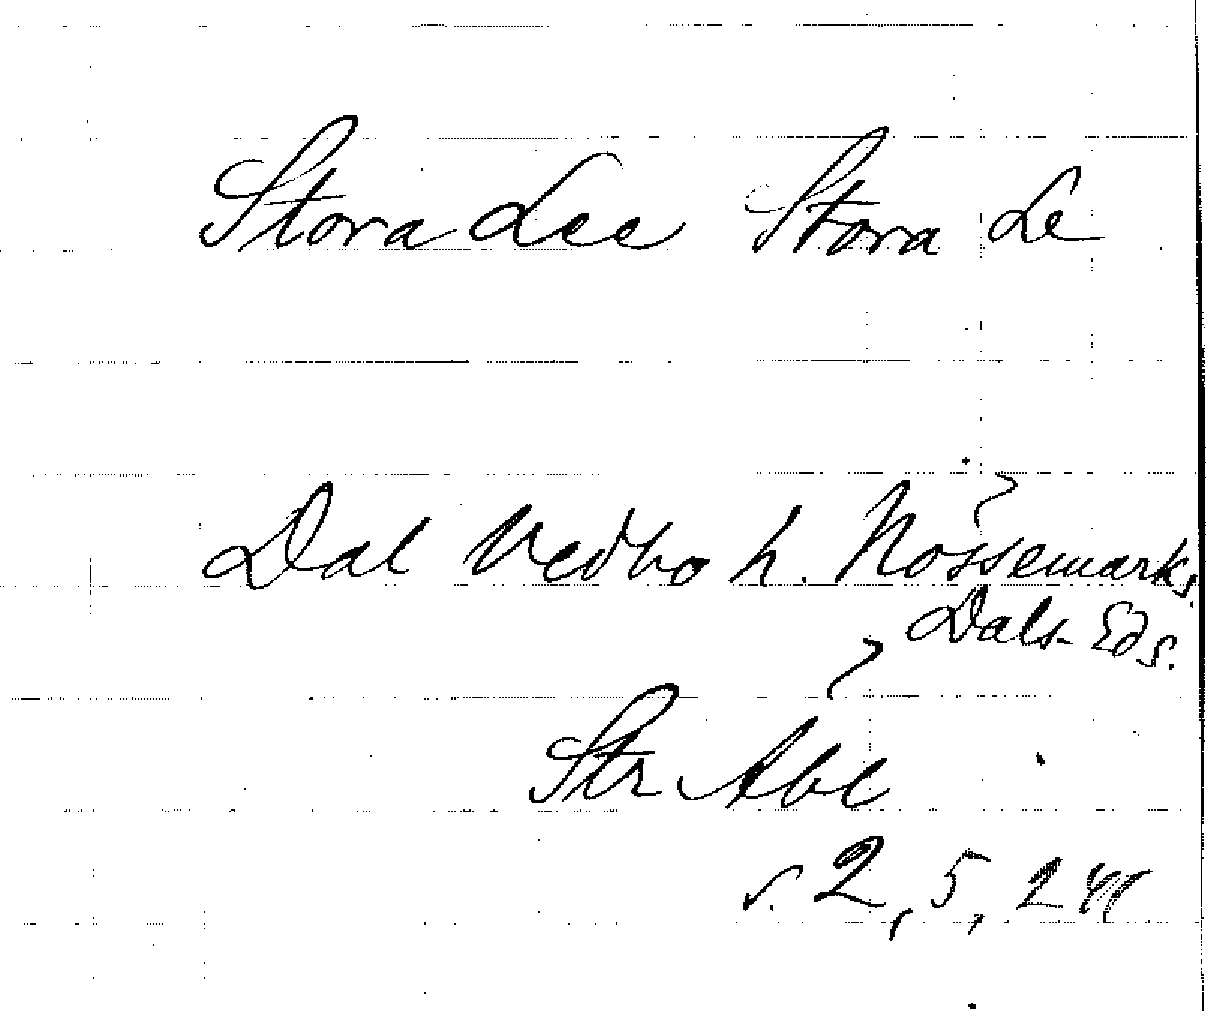 Stora Lee Stora Le
Dal Vedbo h. Nössemarks.
Dals-Eds s.
Str Abl
s. 2, 5,